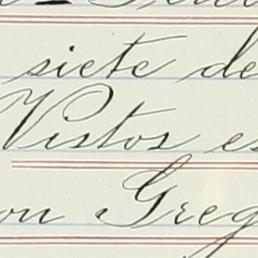 siete de
Vistos es
on Greg